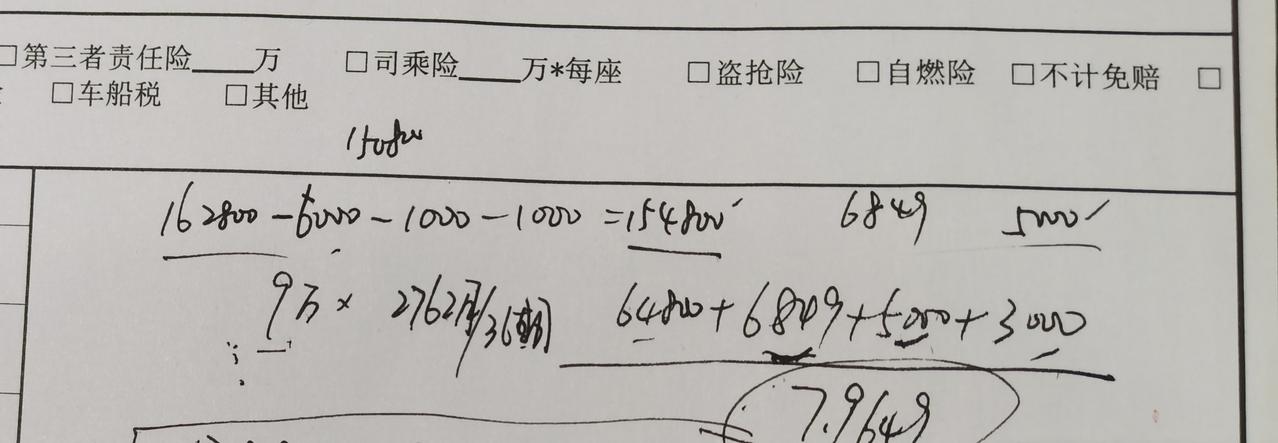 □第三者责任险____万 □司乘险____万*每座 □盗抢险 □自燃险 □不计免赔 □
□车船税 □其他
150800
162800-6000-1000-1000=154800 6849 5000
9万× 2762/月/36期 64800+6849+5000+3000
7.9649